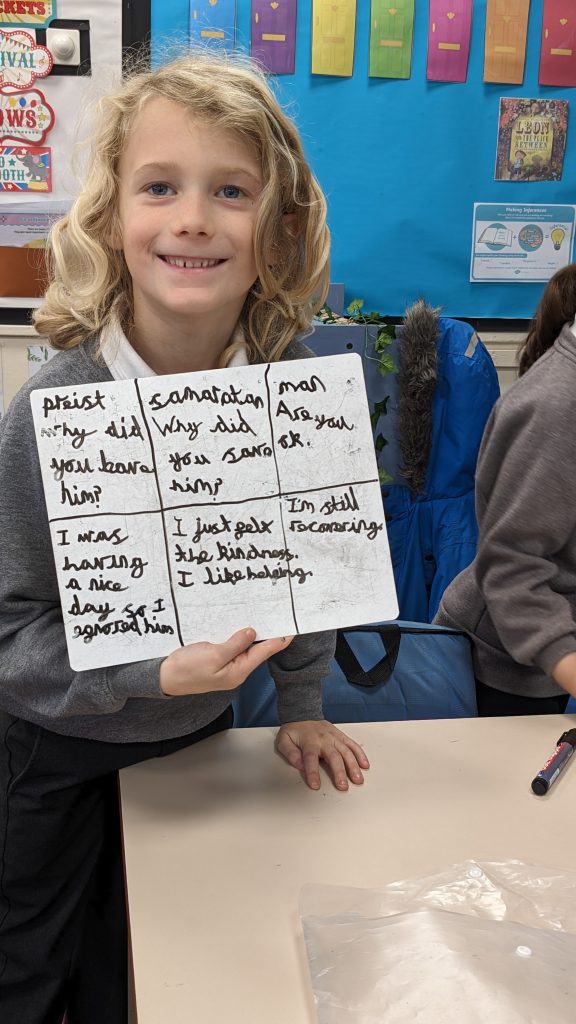 TICKETS
IVAL
OWS
TO
OOTH
LEON
AND
THE PLACE
BETWEEN
Making Inferences
preist
why did
you leave
him?
samaratan
Why did
you save
him?
man
Are you
ok.
I was
having
a nice
day so I
egnored him
I just felt
the kindness.
I like helping.
I'm still
recovering.